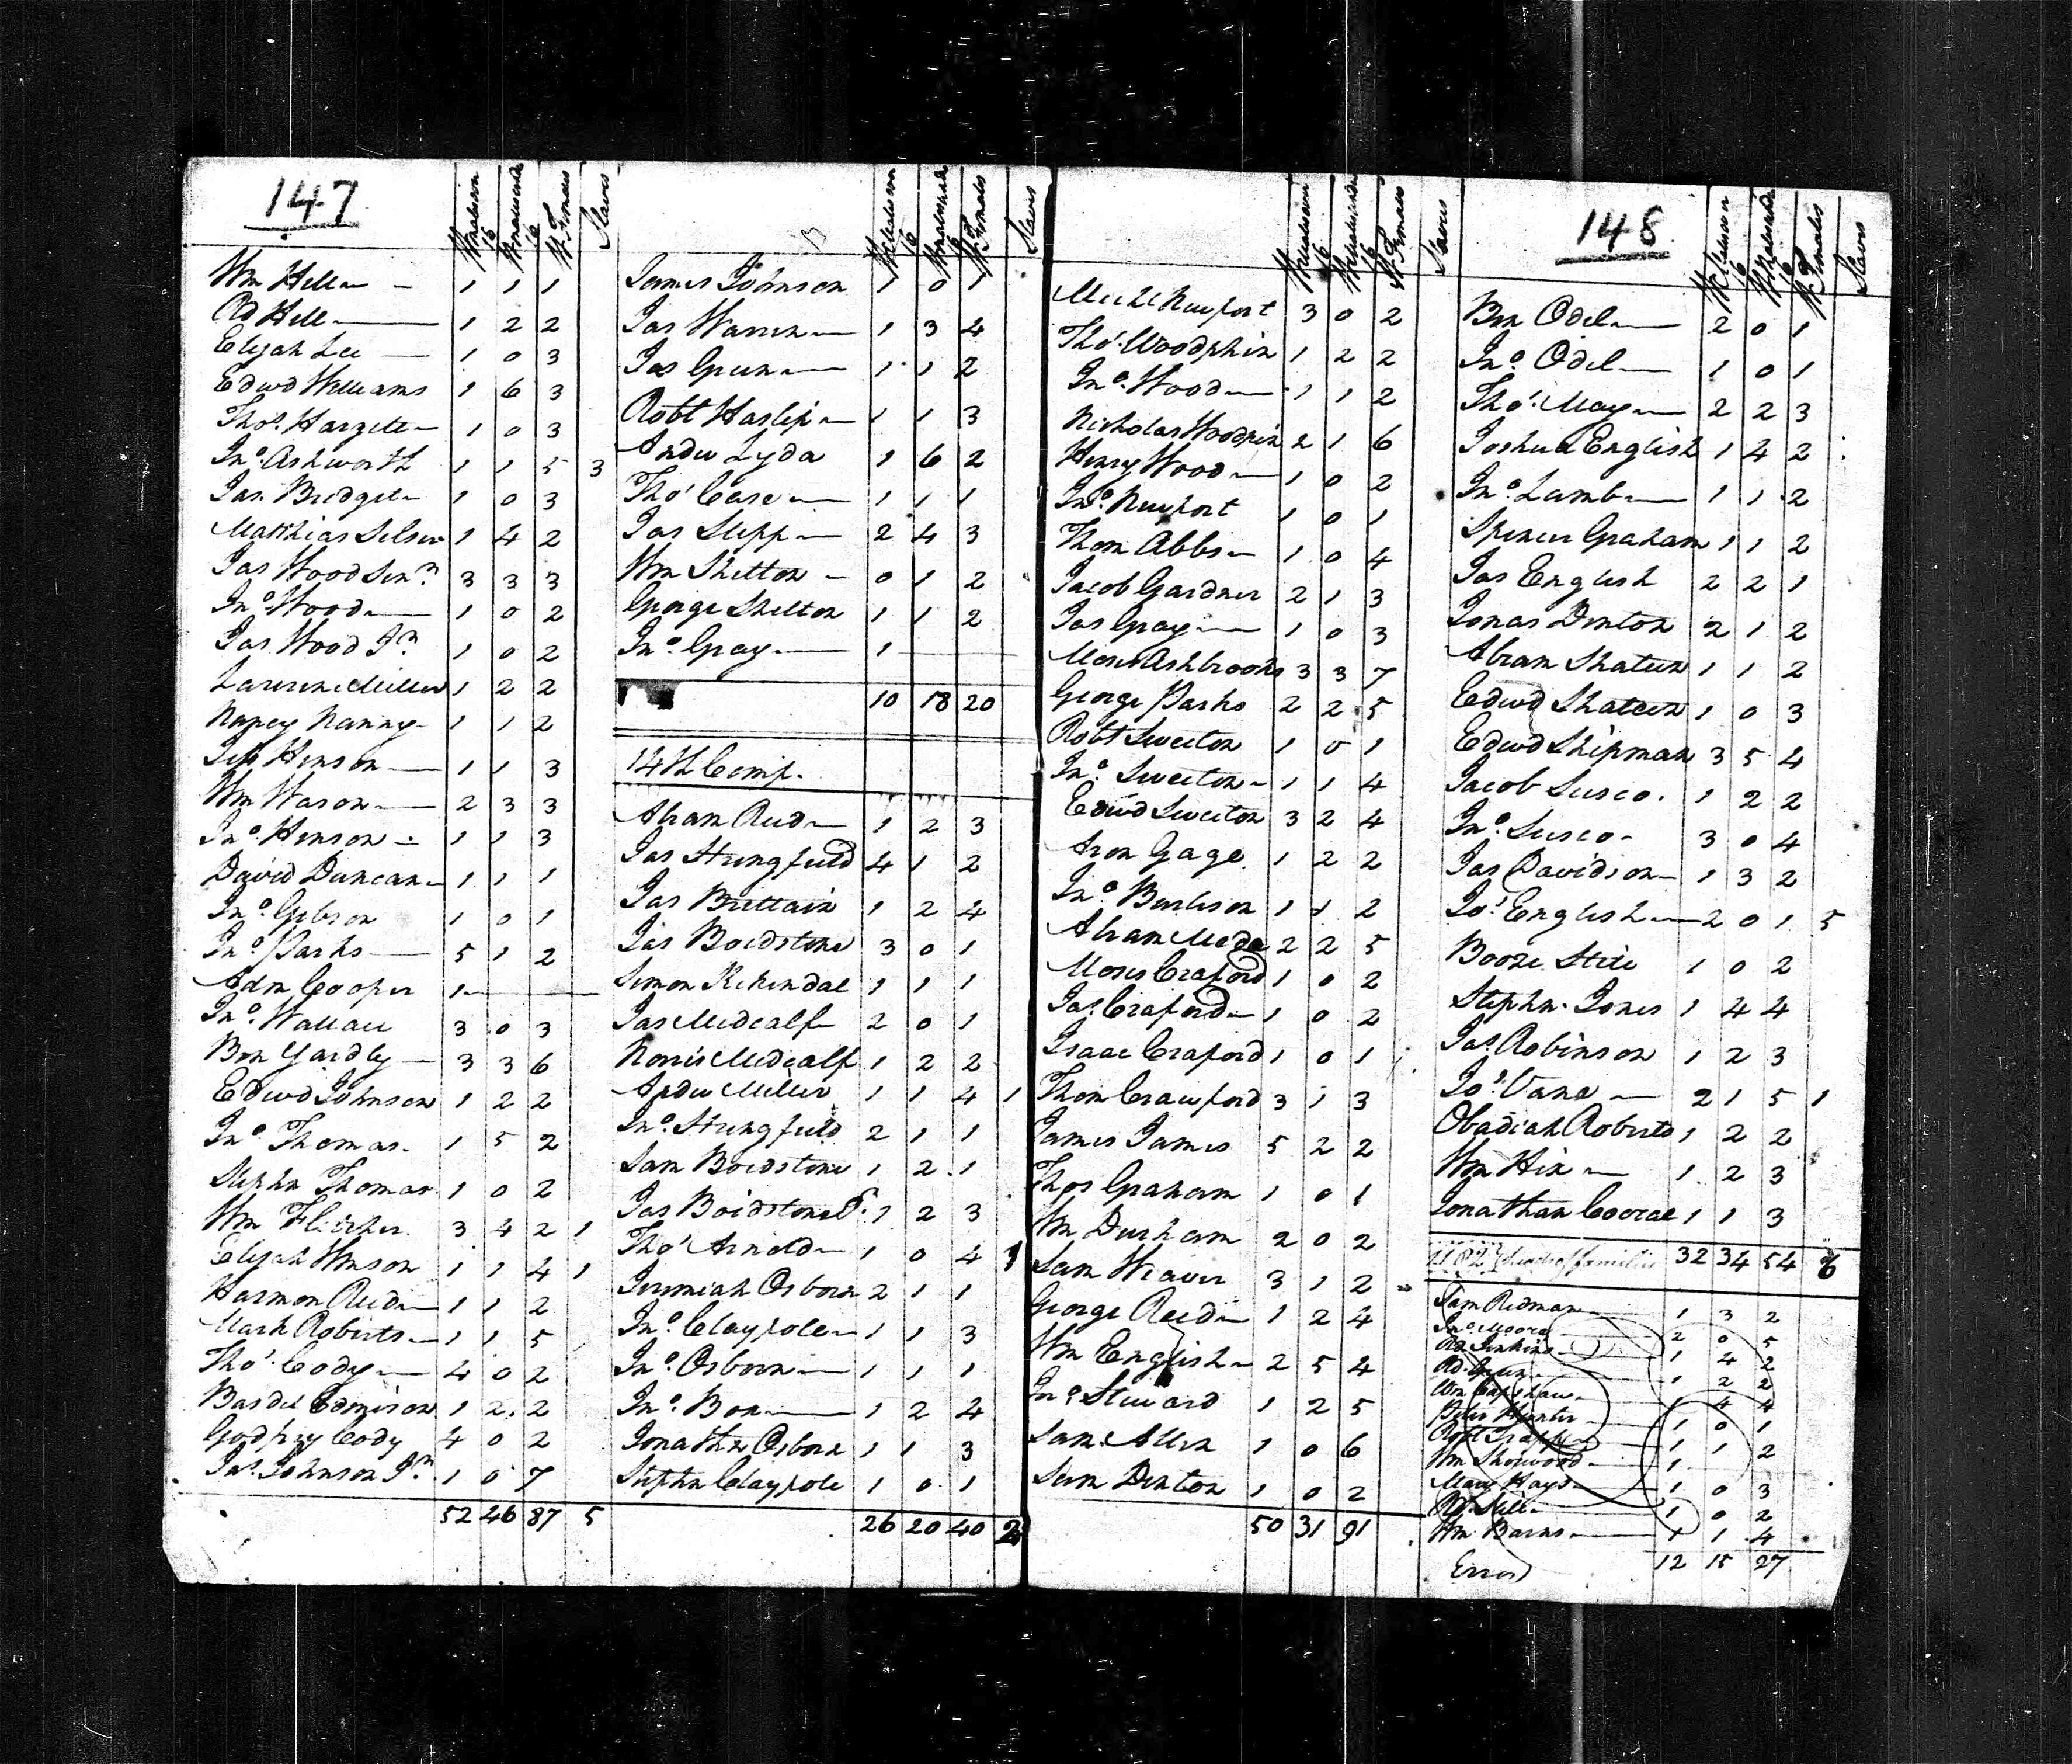 147
Wm Hill 1 1 1
Rd Hill 1 2 2
Elijah Lee 1 0 3
Edwd Williams 1 6 3
Thos. 1 0 3
Jno. Ashworth 1 1 5 3
Jas. Bridget 1 0 3
Matthias Selser 1 4 2
Jas Wood Senr. 3 3 3
Jno. Wood 1 0 2
Jas Wood Jr. 1 0 2
Miller 1 2 2
Nancy Nanny 1 1 2
Henson 1 1 3
Wm Wason 2 3 3
Jno. Henson 1 1 3
David Duncan 1 1 1
Jno. Gibson 1 0 1
Jno. Parks 5 1 2
Adm Cooper 1
Jno. Wallace 3 0 3
Bn Yardly 3 3 6
Edwd Johnson 1 2 2
Jno. Thomas 1 5 2
Stephn Thomas 1 0 2
Wm Fletcher 3 4 2 1
Elijah 1 1 4 1
Harmon Reid 1 1 2
Mark Roberts 1 1 5
Tho. Cody 4 0 2
Edmison 1 2 2
Godfrey Cody 4 0 2
Jas. Johnson Jr. 1 0 7
52 46 87 5
James Johnson 1 0 1
Jas Warren 1 3 4
Jas Green 1 1 2
Robt Haslip 1 1 3
Andw Lyda 1 6 2
Tho. Case 1 1 1
Jas Stepp 2 4 3
Wm Shelton 0 1 2
George Shelton 1 1 2
Jno. Gray 1
10 18 20
14th Comp.
Abram Reid 1 2 3
Jas Stringfield 4 1 2
Jas Brittain 1 2 4
Jas Boidstone 3 0 1
Simon Kikendal 1 1 1
Jas Medcalf 2 0 1
Norris Medcalf 1 2 2
Andw Miller 1 1 4 1
Jno. Stringfield 2 1 1
Sam Boidstone 1 2 1
Jas Boidstone 1 2 3
Tho. Arnold 1 0 4 1
Jeremiah Osborn 2 1 1
Jno. Claypole 1 1 3
Jno. Osborn 1 1 1
Jno. Bon 1 2 4
Jonathn Osborn 1 1 3
Stephn Claypole 1 0 1
26 20 40 2
Newport 3 0 2
Tho. Woodphin 1 2 2
Jno. Wood 1 1 2
Nicholas Woodfin 2 1 6
Henry Wood 1 0 2
Jno. Newport 1 0 1
Thom Abbs 1 0 4
Jacob Gardner 2 1 3
Jas Gray 1 0 3
Moses Ashbrooks 3 3 7
George Parks 2 2 5
Robt Sweeton 1 0 1
Jno. Sweeton 1 1 4
Edwd Sweeton 3 2 4
Aron Gage 1 2 2
Jno. Burleson 1 1 2
Abram 2 2 5
Moses Craford 1 0 2
Jas. Craford 1 0 2
Isaac Craford 1 0 1
Thom Crawford 3 1 3
James James 5 2 2
Thos Graham 1 0 1
Wm Durham 2 0 2
Sam Weaver 3 1 2
George Reed 1 2 4
Wm English 2 5 4
Jno. Steward 1 2 5
Sam. Allen 1 0 6
Sam Denton 1 0 2
50 31 91
148
Bn Odel 2 0 1
Jno. Odel 1 0 1
Tho. May 2 2 3
Joshua English 1 4 2
Jno. Lamb 1 1 2
Spencer Graham 1 1 2
Jas English 2 2 1
Jonas Denton 2 1 2
Abram Shateen 1 1 2
Edwd Shateen 1 0 3
Edwd Shipman 3 5 4
Jacob Susco 1 2 2
Jno. Susco 3 0 4
Jas Davidson 1 3 2
Jos. English 2 0 1 5
Booze Stile 1 0 2
Stephn. Jones 1 4 4
Jas. Robinson 1 2 3
Jos. Vane 2 1 5 1
Obadiah Roberts 1 2 2
Wm Hix 1 2 3
Jonathan 1 1 3
heads of families 32 34 54 6
Sam Redman 1 3 2
Jno. Moore 2 0 5
Rd. Jenkins 1 4 2
Rd. Green 1 2 2
Wm Capshaw 4 4
Peter Hunter 1 0 1
Robt 1 1 2
Wm Sherwood 1
Mary Hays 1 0 3
1 0 2
Wm Barns 1 1 4
Error 12 15 27